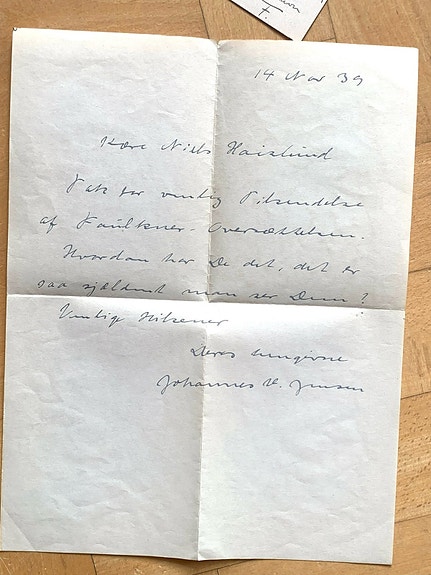 14 Nov 39
Kære Niels Haislund
Tak for venlig Tilsendelse
af Faulkner-Oversættelsen.
Hvordan har De det, det er
saa sjældent man ser Dem?
Venlige Hilsener
Deres hengivne
Johannes V. Jensen